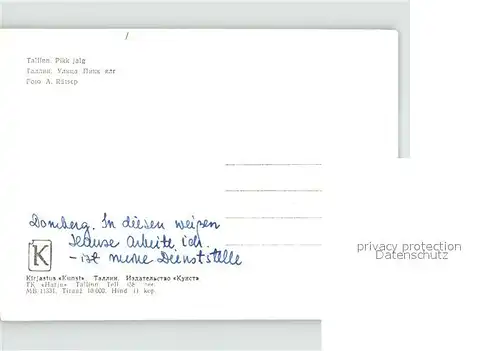 Tallinn. Pikk jalg
Таллин. Улица Пикк ялг
Foto A.
Domberg. In diesen weißen
arbeite ich.
- ist meine Dienststelle
K
Kirjastus «Kunst». Таллин. Издательство «Кунст»
TK «Harju» Tallinn Tell.
MB-11331. Tiraaž 10 000. Hind 11 kop.
privacy protection
Datenschutz